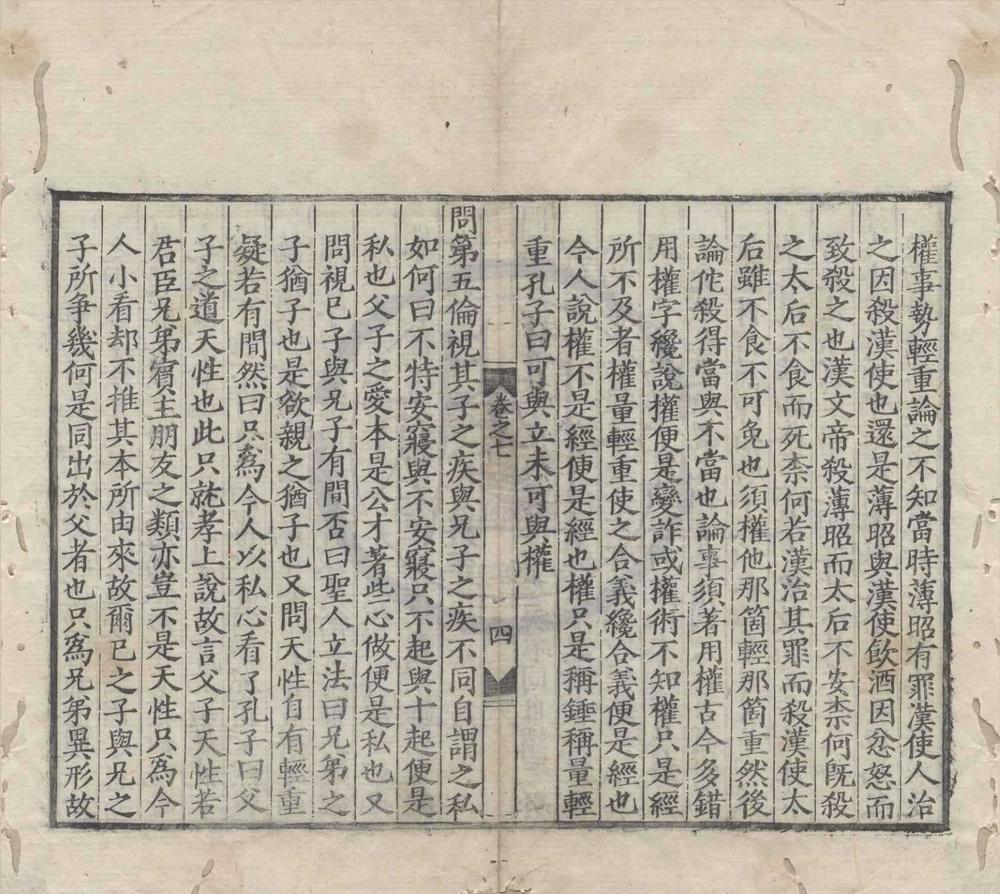 權事勢輕重論之不知當時薄昭有罪漢使人治
之因殺漢使也還是薄昭與漢使飲酒因忿怒而
致殺之也漢文帝殺薄昭而太后不安柰何旣殺
之太后不食而死柰何若漢治其罪而殺漢使太
后雖不食不可免也須權他那箇輕那箇重然後
論佗殺得當與不當也論事須著用權古今多錯
用權字纔說權便是變詐或權術不知權只是經
所不及者權量輕重使之合義纔合義便是經也
今人說權不是經便是經也權只是稱錘稱量輕
重孔子曰可與立未可與權
卷之七
四
問第五倫視其子之疾與兄子之疾不同自謂之私
如何曰不特安寢與不安寢只不起與十起便是
私也父子之愛本是公才著些心做便是私也又
問視己子與兄子有間否曰聖人立法曰兄弟之
子猶子也是欲親之猶子也又問天性自有輕重
疑若有間然曰只爲今人以私心看了孔子曰父
子之道天性也此只就孝上說故言父子天性若
君臣兄弟賓主朋友之類亦豈不是天性只爲今
人小看却不推其本所由來故爾己之子與兄之
子所爭幾何是同出於父者也只爲兄弟異形故